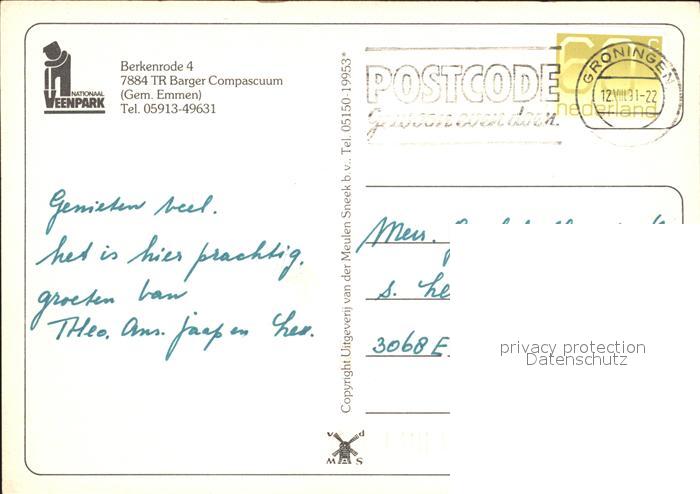 NATIONAAL
VEENPARK
Berkenrode 4
7884 TR Barger Compascuum
(Gem. Emmen)
Tel. 05913-49631
POSTCODE
Gewoon even doen.
GRONINGEN
12.VIII.91-22
60 c
nederland
Genieten veel.
het is hier prachtig.
groeten van
Theo. Ans. Jaap en
Copyright Uitgeverij van der Meulen Sneek b.v., Tel. 05150-19953*
Mevr.
S.
3068 E
privacy protection
Datenschutz
v d
M S